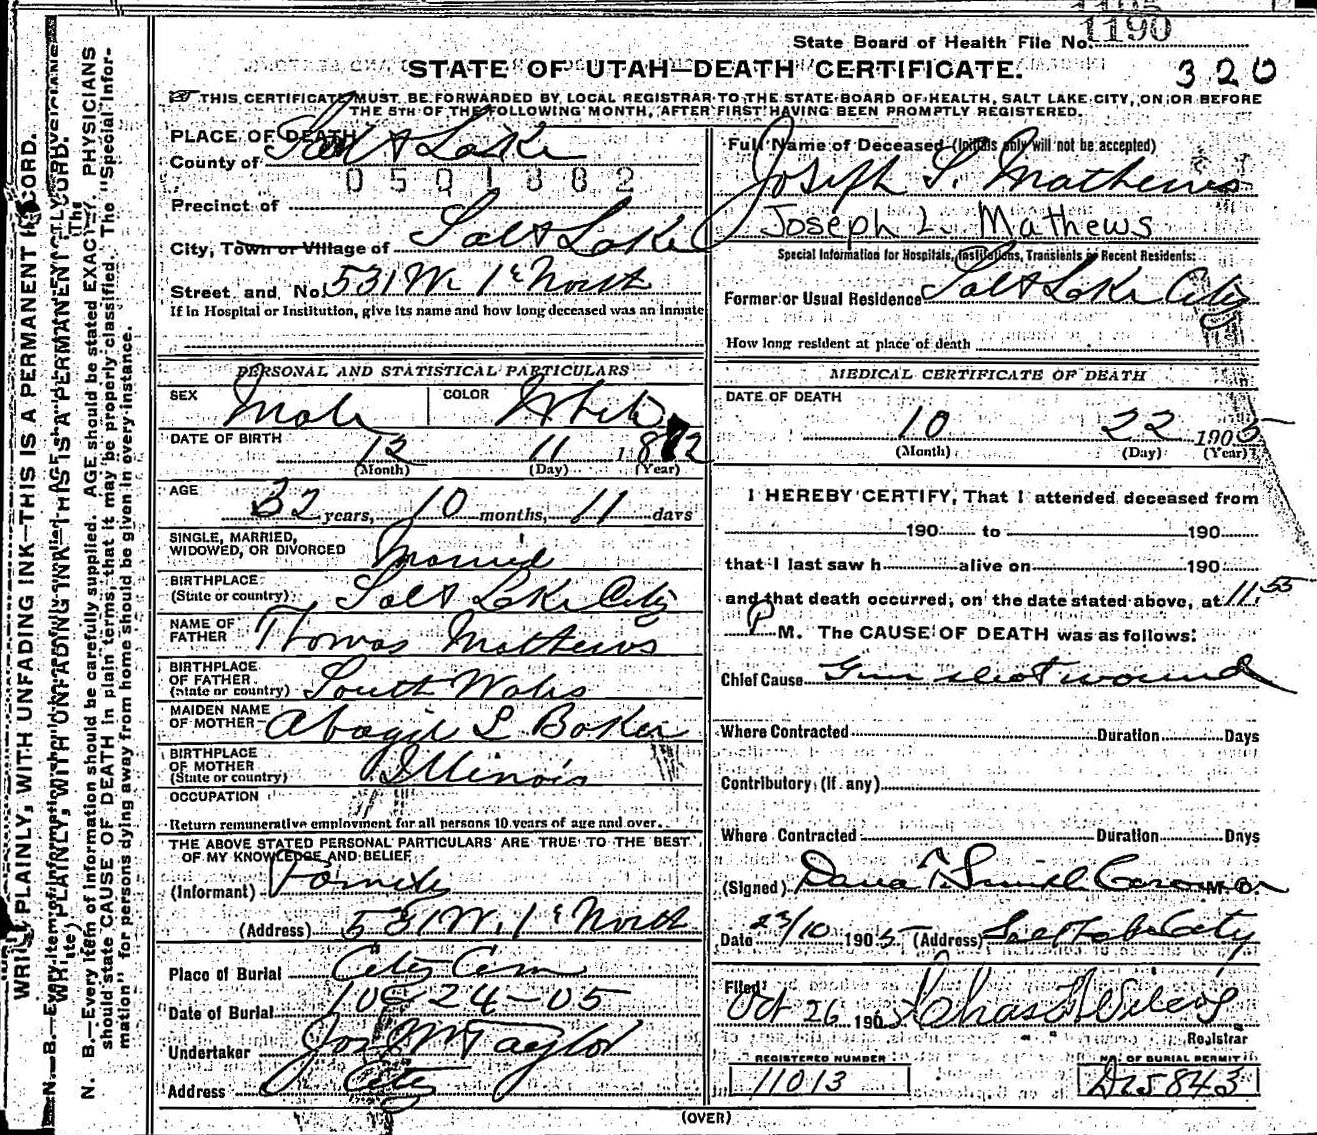 1190
State Board of Health File No.
STATE OF UTAH—DEATH CERTIFICATE.
320
THIS CERTIFICATE MUST BE FORWARDED BY LOCAL REGISTRAR TO THE STATE BOARD OF HEALTH, SALT LAKE CITY, ON OR BEFORE
THE 5TH OF THE FOLLOWING MONTH, AFTER FIRST HAVING BEEN PROMPTLY REGISTERED.
PLACE OF DEATH
County of Salt Lake
0501882
Precinct of
City, Town or Village of Salt Lake
Street and No. 531 W. 1st North
If in Hospital or Institution, give its name and how long deceased was an inmate
PERSONAL AND STATISTICAL PARTICULARS
SEX Male COLOR White
DATE OF BIRTH 12 11 1872
(Month) (Day) (Year)
AGE 32 years, 10 months, 11 days
SINGLE, MARRIED,
WIDOWED, OR DIVORCED Married
BIRTHPLACE
(State or country) Salt Lake City
NAME OF
FATHER Thomas Mathews
BIRTHPLACE
OF FATHER
(State or country) South Wales
MAIDEN NAME
OF MOTHER Abagil L Baker
BIRTHPLACE
OF MOTHER
(State or country) Illinois
OCCUPATION
Return remunerative employment for all persons 10 years of age and over.
THE ABOVE STATED PERSONAL PARTICULARS ARE TRUE TO THE BEST
OF MY KNOWLEDGE AND BELIEF
(Informant) Family
(Address) 531 W. 1st North
Place of Burial City Cem
Date of Burial 10-24-05
Undertaker Jos Wm Taylor
Address City
Full Name of Deceased (Initials only will not be accepted)
Joseph L. Mathews
Joseph L. Mathews
Special Information for Hospitals, Institutions, Transients or Recent Residents:
Former or Usual Residence Salt Lake City
How long resident at place of death
MEDICAL CERTIFICATE OF DEATH
DATE OF DEATH
10 22 1905
(Month) (Day) (Year)
I HEREBY CERTIFY, That I attended deceased from
190 to 190
that I last saw h alive on 190
and that death occurred, on the date stated above, at 11.55
P M. The CAUSE OF DEATH was as follows:
Chief Cause Gun shot wound
Where Contracted Duration Days
Contributory (If any)
Where Contracted Duration Days
(Signed) Dana T. Smith Coroner M.D.
Date 23/10 1905 (Address) Salt Lake City
Filed
Oct 26 1905 Chas
Registrar
REGISTERED NUMBER
11013
NO. OF BURIAL PERMIT
D15843
(OVER)
WRITE PLAINLY, WITH UNFADING INK—THIS IS A PERMANENT RECORD.
N. B.—Every item of information should be carefully supplied. AGE should be stated EXACTLY. PHYSICIANS
should state CAUSE OF DEATH in plain terms, that it may be properly classified. The "Special Infor-
mation" for persons dying away from home should be given in every instance.